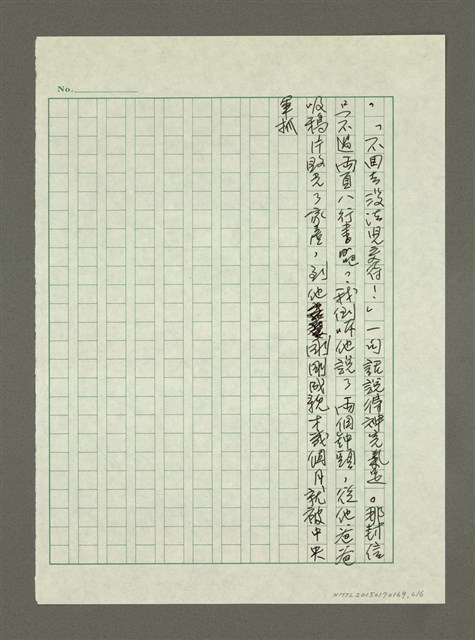 No.
。「不回去沒法兒交待！」一句話說得神完氣足。那封信
只不過兩頁八行書吧？我倒听他說了兩個鐘頭，從他爸爸
吸鴉片敗光了家產，到他剛剛成親才弍個月就被中央
軍抓
NMTL20150170169_016